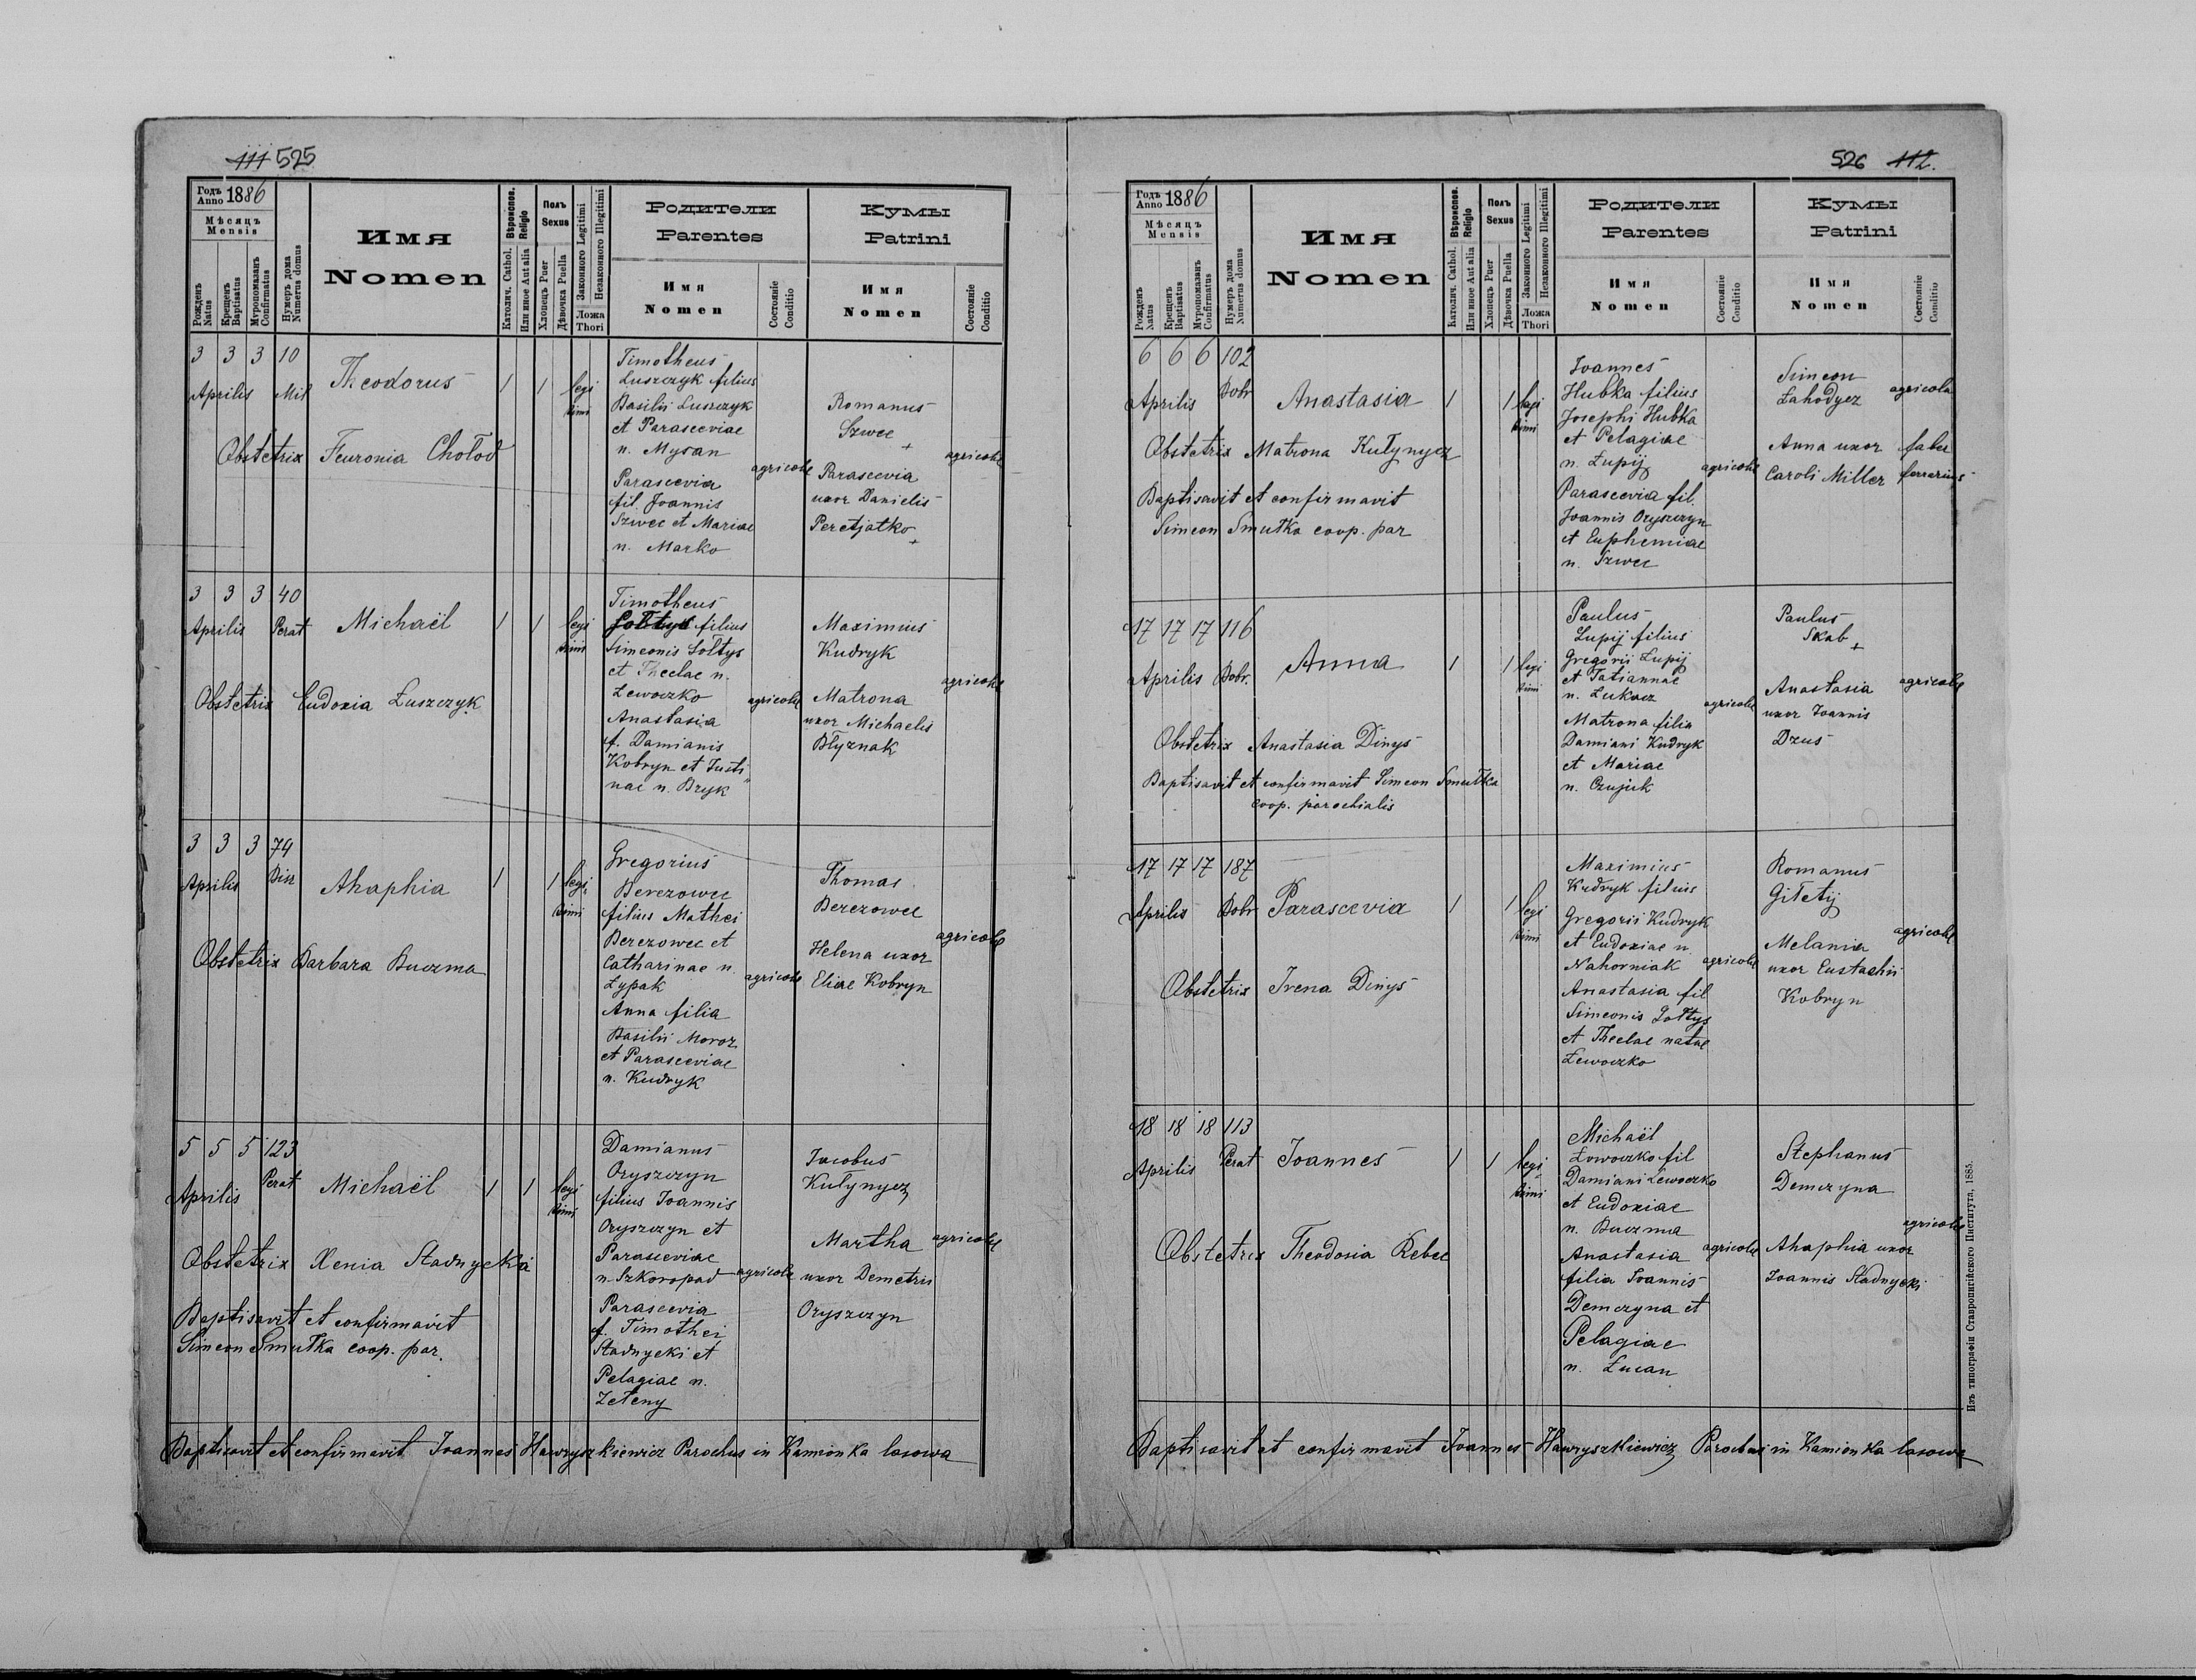 111 525
Годъ Anno 1886
Мѣсяцъ Mensis
Рожденъ Natus
Крещенъ Baptisatus
Мѵропомазанъ Confirmatus
Нумеръ дома Numerus domus
Имя
Nomen
Вѣроисповѣд. Religio
Католич. Cathol.
Или иное Aut alia
Полъ Sexus
Хлопецъ Puer
Дѣвочка Puella
Законного Legitimi
Незаконного Illegitimi
Ложа Thori
Родители
Parentes
Имя
Nomen
Состояніе Conditio
Кумы
Patrini
Имя
Nomen
Состояніе Conditio
3 3 3 10
Aprilis Mil
Theodorus
1 1 legi
timi
Timotheus
Łuszczyk filius
Basilii Łuszczyk
et Parasceviae
n. Mysan
Parascevia
fil. Joannis
Szwec et Mariae
n. Marko
agricolae
Romanus
Szwec +
Parascevia
uxor Danielis
Peretjatko +
agricolae
Obstetrix Feuronia Chołod
3 3 3 40
Aprilis Perat
Michaël
1 1 legi
timi
Timotheus
Sołtys filius
Simeonis Sołtys
et Theclae n.
Lewoczko
Anastasia
f. Damianis
Kobryn et Justi
nae n. Bryk
agricolae
Maximius
Kudryk
Matrona
uxor Michaelis
Błyznak
agricolae
Obstetrix Eudoxia Łuszczyk
3 3 3 74
Aprilis
Ahaphia
1 1 legi
timi
Gregorius
Berezowec
filius Mathei
Berezowec et
Catharinae n.
Łypak
Anna filia
Basilii Moroz
et Parasceviae
n. Kudryk
agricolae
Thomas
Berezowec
Helena uxor
Eliae Kobryn
agricolae
Obstetrix Barbara Buczma
5 5 5 123
Aprilis Perat
Michaël
1 1 legi
timi
Damianus
Oryszczyn
filius Joannis
Oryszczyn et
Parasceviae
n. Szkoropad
Parascevia
f. Timothei
Stadnycki et
Pelagiae n.
Zełeny
agricolae
Jacobus
Kułynycz
Martha
uxor Demetrii
Oryszczyn
agricolae
Obstetrix Xenia Stadnycka
Baptisavit et confirmavit
Simeon Smułka coop. par.
Baptisavit et confirmavit Joannes Hawryszkiewicz Parochus in Kamionka lasowa
526 112.
Годъ Anno 1886
Мѣсяцъ Mensis
Рожденъ Natus
Крещенъ Baptisatus
Мѵропомазанъ Confirmatus
Нумеръ дома Numerus domus
Имя
Nomen
Вѣроисповѣд. Religio
Католич. Cathol.
Или иное Aut alia
Полъ Sexus
Хлопецъ Puer
Дѣвочка Puella
Законного Legitimi
Незаконного Illegitimi
Ложа Thori
Родители
Parentes
Имя
Nomen
Состояніе Conditio
Кумы
Patrini
Имя
Nomen
Состояніе Conditio
6 6 6 102
Aprilis Dobr
Anastasia
1 1 legi
timi
Joannes
Hubka filius
Josephi Hubka
et Pelagiae
n. Łupij
Parascevia fil.
Joannis Oryszczyn
et Euphemiae
n. Szwec
agricolae
Simeon
Łahodycz
agricola
Anna uxor
Caroli Miller
faber
ferrarius
Obstetrix Matrona Kułynycz
Baptisavit et confirmavit
Simeon Smułka coop. par
17 17 17 116
Aprilis Dobr.
Anna
1 1 legi
timi
Paulus
Łupij filius
Gregorii Łupij
et Tatiannae
n. Łukacz
Matrona filia
Damiani Kudryk
et Mariae
n. Czujick
agricolae
Paulus
Skab +
Anastasia
uxor Joannis
Dzus
agricolae
Obstetrix Anastasia Dinys
Baptisavit et confirmavit Simeon Smułka
coop. parochialis
17 17 17 187
Aprilis Dobr
Parascevia
1 1 legi
timi
Maximius
Kudryk filius
Gregorii Kudryk
et Eudoxiae n.
Nahorniak
Anastasia fil
Simeonis Sołtys
et Theclae natae
Lewoczko
agricolae
Romanus
Giłetij
Melania
uxor Eustachii
Kobryn
agricolae
Obstetrix Irena Dinys
18 18 18 113
Aprilis Perat
Joannes
1 1 legi
timi
Michaël
Lewoczko fil
Damiani Lewoczko
et Eudoxiae
n. Buczma
Anastasia
filia Joannis
Demczyna et
Pelagiae
n. Łucan
agricolae
Stephanus
Demczyna
Ahaphia uxor
Joannis Stadnycki
agricolae
Obstetrix Theodosia Rebec
Baptisavit et confirmavit Joannes Hawryszkiewicz Parochus in Kamionka lasowa
Изъ типографіи Ставропигійского Института, 1885.